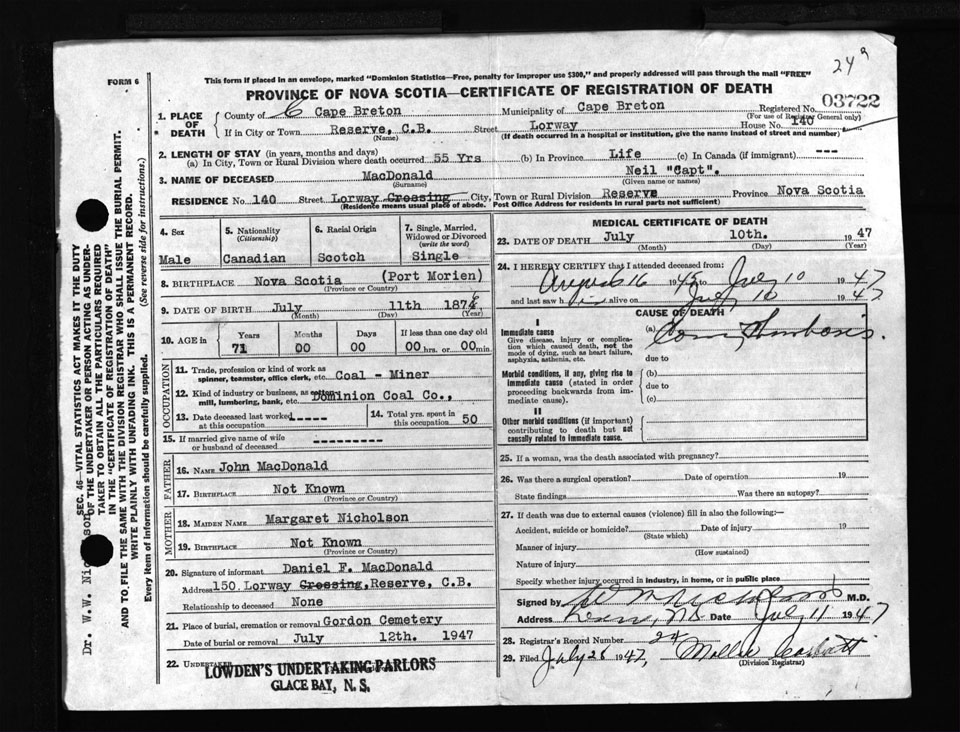 24a
FORM 6
This form if placed in an envelope, marked "Dominion Statistics—Free, penalty for improper use $300," and properly addressed will pass through the mail "FREE"
PROVINCE OF NOVA SCOTIA—CERTIFICATE OF REGISTRATION OF DEATH
1. PLACE OF DEATH
County of C Cape Breton Municipality of Cape Breton Registered No. 03722
(For use of Registrar General only)
If in City or Town Reserve, C.B. Street Lorway House No. 140
(Name) (If death occurred in a hospital or institution, give the name instead of street and number)
2. LENGTH OF STAY (in years, months and days)
(a) In City, Town or Rural Division where death occurred 55 Yrs (b) In Province Life (c) In Canada (if immigrant) ---
3. NAME OF DECEASED MacDonald Neil "Capt".
(Surname) (Given name or names)
RESIDENCE No. 140 Street Lorway Crossing City, Town or Rural Division Reserve Province Nova Scotia
(Residence means usual place of abode. Post Office Address for residents in rural parts not sufficient)
4. Sex
Male
5. Nationality
(Citizenship)
Canadian
6. Racial Origin
Scotch
7. Single, Married, Widowed or Divorced
(write the word)
Single
8. BIRTHPLACE Nova Scotia (Port Morien)
(Province or Country)
9. DATE OF BIRTH July 11th 1876
(Month) (Day) (Year)
10. AGE in
Years Months Days If less than one day old
71 00 00 00 hrs. or 00 min.
OCCUPATION
11. Trade, profession or kind of work as
spinner, teamster, office clerk, etc. Coal - Miner
12. Kind of industry or business, as cotton
mill, lumbering, bank, etc. Dominion Coal Co.,
13. Date deceased last worked -----
at this occupation
14. Total yrs. spent in
this occupation 50
15. If married give name of wife
or husband of deceased ---------
FATHER
16. NAME John MacDonald
17. BIRTHPLACE Not Known
(Province or Country)
MOTHER
18. MAIDEN NAME Margaret Nicholson
19. BIRTHPLACE Not Known
(Province or Country)
20. Signature of informant Daniel F. MacDonald
Address 150 Lorway Crossing, Reserve, C.B.
Relationship to deceased None
21. Place of burial, cremation or removal Gordon Cemetery
Date of burial or removal July 12th. 1947
22. UNDERTAKER
LOWDEN'S UNDERTAKING PARLORS
GLACE BAY, N. S.
MEDICAL CERTIFICATE OF DEATH
23. DATE OF DEATH July 10th. 1947
(Month) (Day) (Year)
24. I HEREBY CERTIFY that I attended deceased from:
August 16 1945 to July 10 1947
and last saw him alive on July 10 1947
CAUSE OF DEATH
I
Immediate cause
Give disease, injury or complication which caused death, not the mode of dying, such as heart failure, asphyxia, asthenia, etc.
(a) Thrombosis.
due to
Morbid conditions, if any, giving rise to immediate cause (stated in order proceeding backwards from immediate cause).
(b)
due to
(c)
II
Other morbid conditions (if important) contributing to death but not causally related to immediate cause.
25. If a woman, was the death associated with pregnancy?
26. Was there a surgical operation? Date of operation 19
State findings Was there an autopsy?
27. If death was due to external causes (violence) fill in also the following:—
Accident, suicide or homicide? Date of injury 19
(State which)
Manner of injury
(How sustained)
Nature of injury
Specify whether injury occurred in industry, in home, or in public place
Signed by M.D.
Address N.S. Date July 11 1947
28. Registrar's Record Number 24
29. Filed July 28 1947, Mollie
(Division Registrar)
SEC. 46—VITAL STATISTICS ACT MAKES IT THE DUTY
OF THE UNDERTAKER OR PERSON ACTING AS UNDER-
TAKER TO OBTAIN ALL THE PARTICULARS REQUIRED
IN THE "CERTIFICATE OF REGISTRATION OF DEATH"
AND TO FILE THE SAME WITH THE DIVISION REGISTRAR WHO SHALL ISSUE THE BURIAL PERMIT.
WRITE PLAINLY WITH UNFADING INK. THIS IS A PERMANENT RECORD.
Every item of information should be carefully supplied. (See reverse side for instructions.)
Dr. W.W.